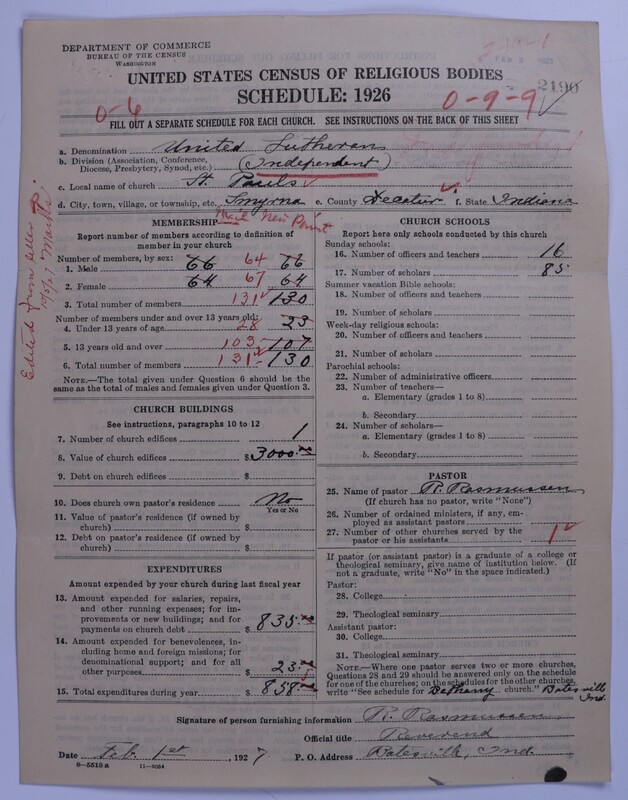 DEPARTMENT OF COMMERCE
BUREAU OF THE CENSUS
WASHINGTON
2190
UNITED STATES CENSUS OF RELIGIOUS BODIES
SCHEDULE: 1926
0-6
0-9-9
FILL OUT A SEPARATE SCHEDULE FOR EACH CHURCH. SEE INSTRUCTIONS ON THE BACK OF THIS SHEET
a. Denomination United Lutheran
b. Division (Association, Conference, Diocese, Presbytery, Synod, etc.) (Independent)
c. Local name of church St. Pauls
d. City, town, village, or township, etc. Smyrna e. County Decatur f. State Indiana
Mail New Point
Edited from letter
MEMBERSHIP
Report number of members according to definition of
member in your church
Number of members, by sex:
1. Male 66 64 66
2. Female 64 67 64
3. Total number of members 131 130
Number of members under and over 13 years old:
4. Under 13 years of age 28 23
5. 13 years old and over 103 107
6. Total number of members 131 130
NOTE.—The total given under Question 6 should be
the same as the total of males and females given under Question 3.
CHURCH BUILDINGS
See instructions, paragraphs 10 to 12
7. Number of church edifices 1
8. Value of church edifices $ 3000
9. Debt on church edifices $
10. Does church own pastor's residence No
Yes or No
11. Value of pastor's residence (if owned by
church) $
12. Debt on pastor's residence (if owned by
church) $
EXPENDITURES
Amount expended by your church during last fiscal year
13. Amount expended for salaries, repairs,
and other running expenses; for im-
provements or new buildings; and for
payments on church debt $ 835
14. Amount expended for benevolences, in-
cluding home and foreign missions; for
denominational support; and for all
other purposes $ 23
15. Total expenditures during year $ 858
CHURCH SCHOOLS
Report here only schools conducted by this church
Sunday schools:
16. Number of officers and teachers 16
17. Number of scholars 85
Summer vacation Bible schools:
18. Number of officers and teachers
19. Number of scholars
Week-day religious schools:
20. Number of officers and teachers
21. Number of scholars
Parochial schools:
22. Number of administrative officers
23. Number of teachers—
a. Elementary (grades 1 to 8)
b. Secondary
24. Number of scholars—
a. Elementary (grades 1 to 8)
b. Secondary
PASTOR
25. Name of pastor R. Rasmussen
(If church has no pastor, write "None")
26. Number of ordained ministers, if any, em-
ployed as assistant pastors
27. Number of other churches served by the
pastor or his assistants 1
If pastor (or assistant pastor) is a graduate of a college or
theological seminary, give name of institution below. (If
not a graduate, write "No" in the space indicated.)
Pastor:
28. College
29. Theological seminary
Assistant pastor:
30. College
31. Theological seminary
NOTE.—Where one pastor serves two or more churches,
Questions 28 and 29 should be answered only on the schedule
for one of the churches; on the schedules for the other churches,
write "See schedule for Bethany church." Batesville Ind.
Signature of person furnishing information R. Rasmussen
Official title Reverend
Date Feb. 1st, 1927 P. O. Address Batesville, Ind.
8—5519 a 11—9054